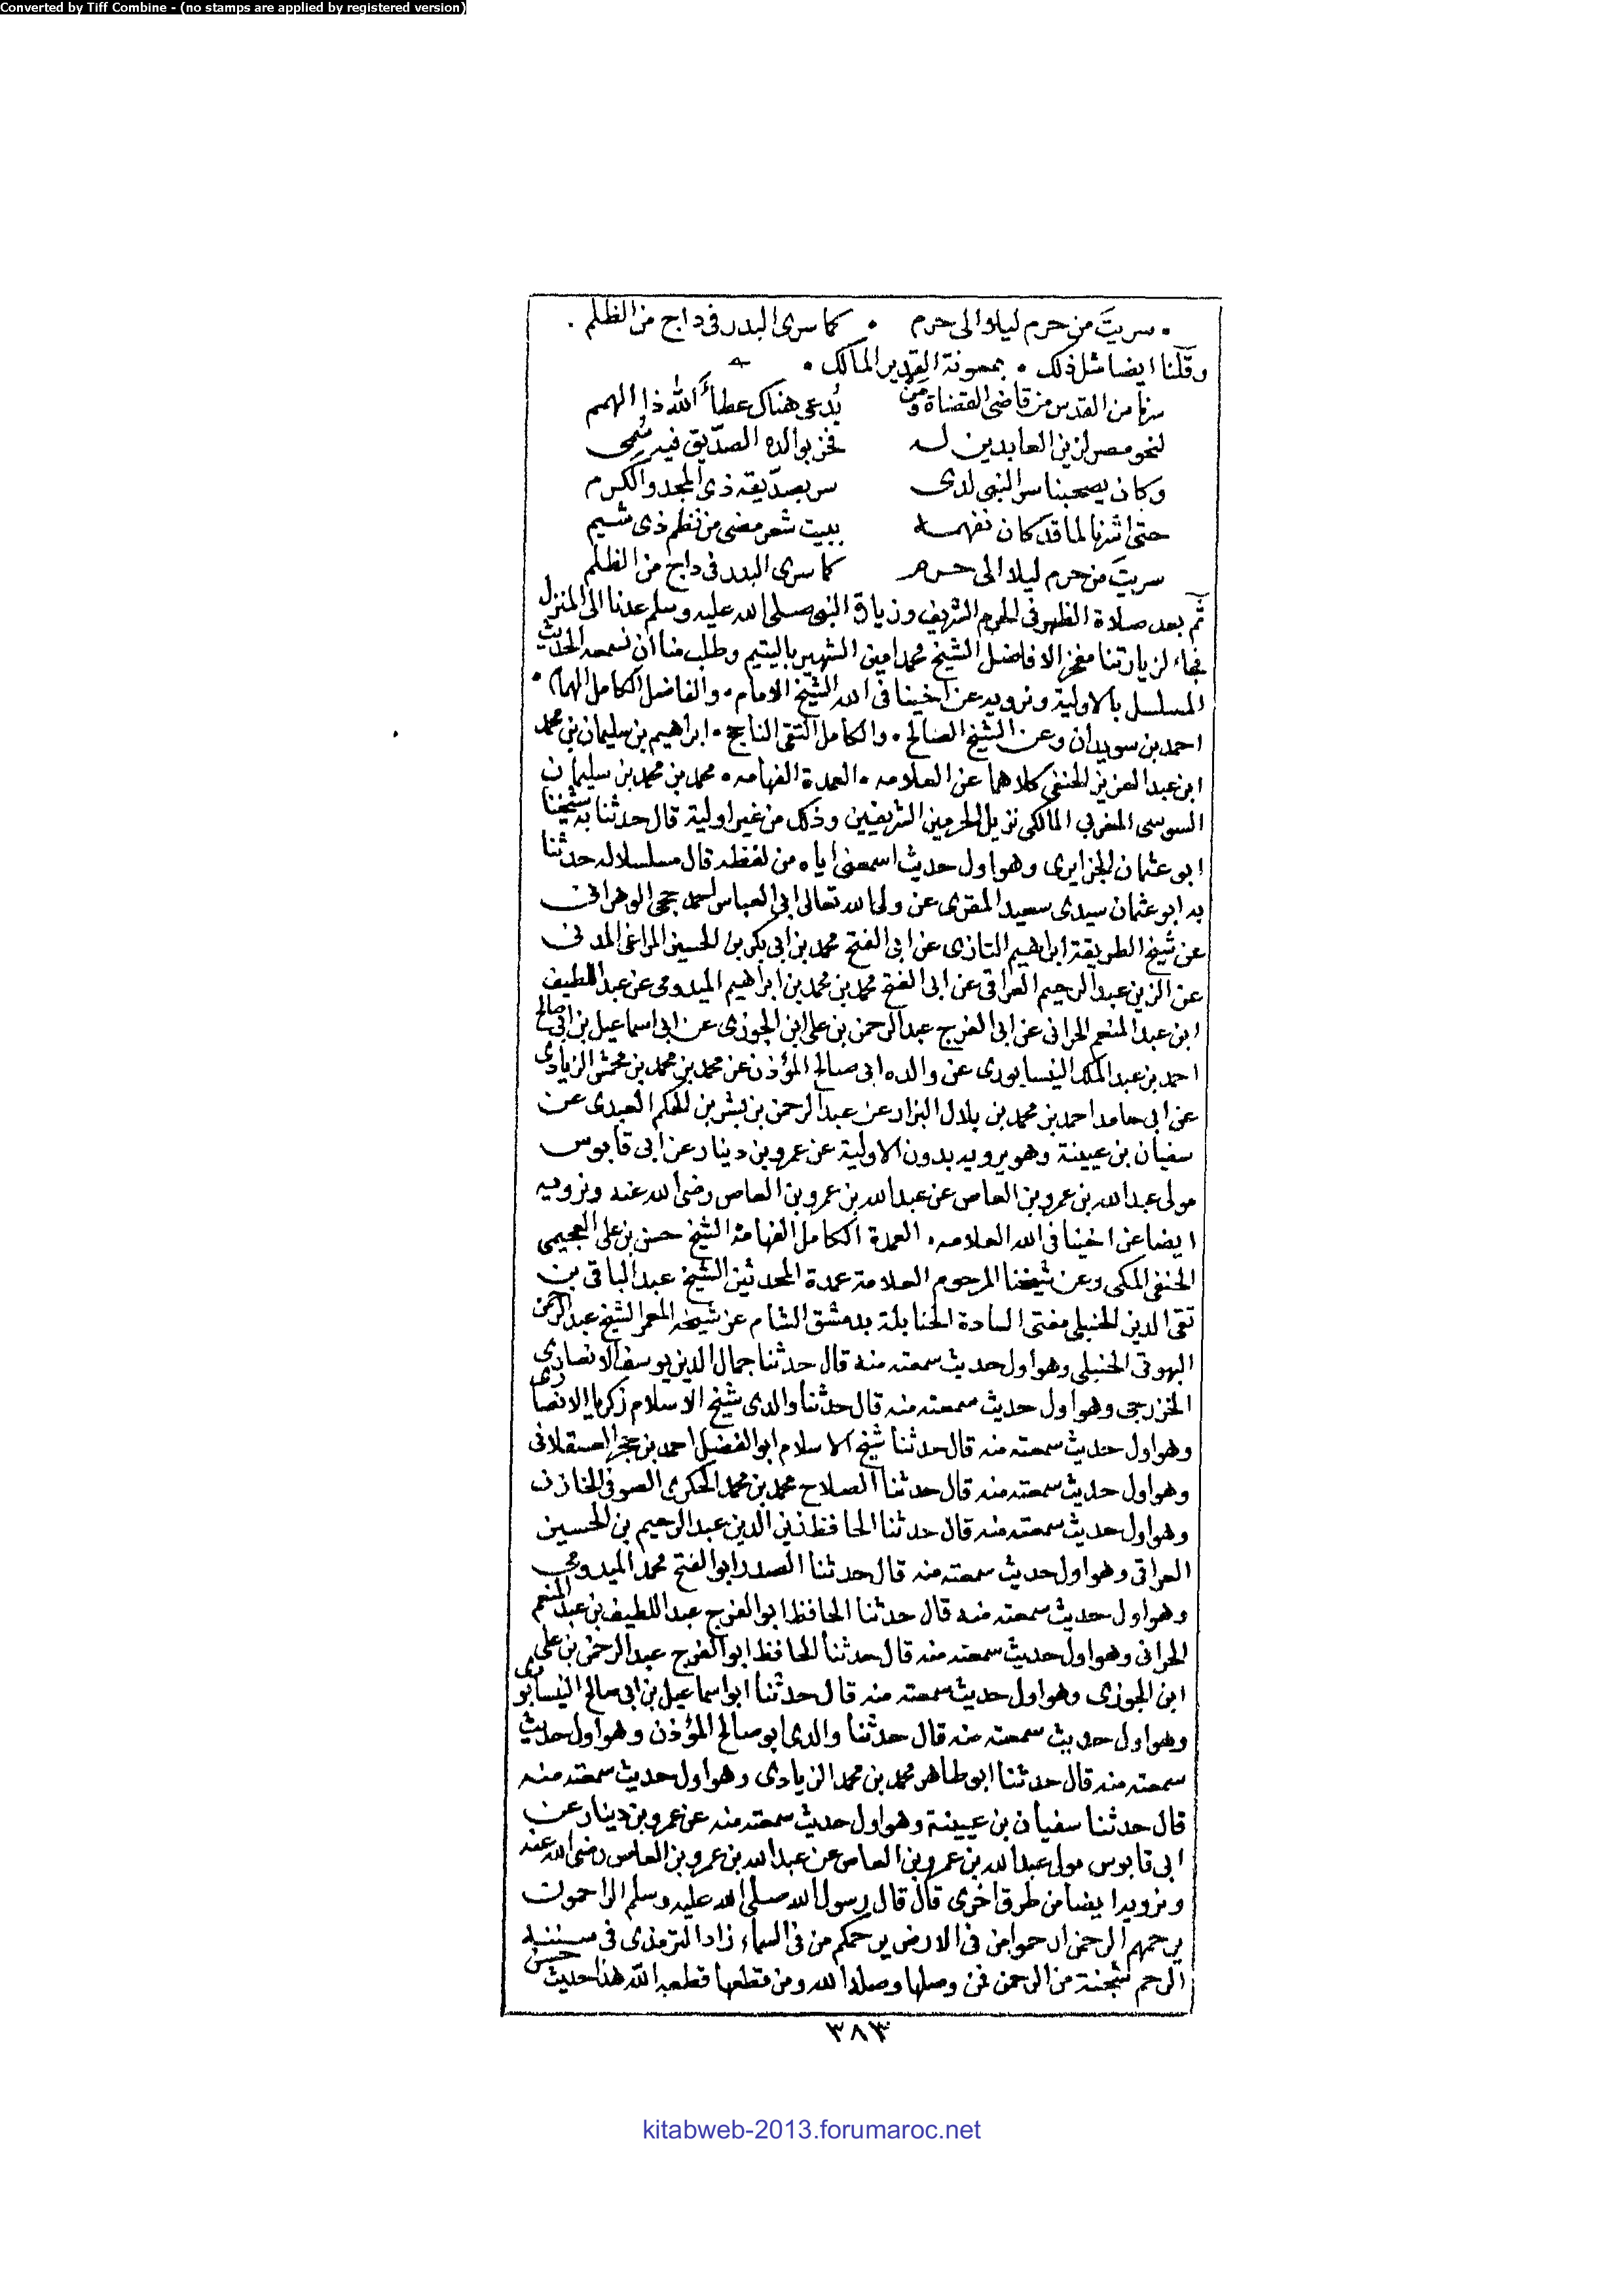 Converted by Tiff Combine - (no stamps are applied by registered version)
• سريتَ من حرم ليلا الى حرم • كما سرى البدر فى داج من الظلم .
وقلنا ايضا مثل ذلك • بمعونة القدير المالك •
سرنا من القدس من قاضى القضاة ومَنْ يُدعى هناك عطأَ الله ذا الهمم
لنحو مصر لزين العابدين له فخر بوالده الصدّيق فيه سُمِى
وكان يصحبنا سر النبى لدى سر بصدّيقه ذى المجد والكرم
حتى اشرنا لما قد كان نفهمه ببيت شعر مضى من نظم ذى شيم
سريتَ من حرم ليلا الى حرم كما سرى البدر فى داج من الظلم
ثم بعد صلاة الظهر فى الحرم الشريف وزيارة النبى صلى الله عليه وسلم عدنا الى المنزل
فجاء لزيارتنا مفخر الافاضل الشيخ محمد امين الشهير باليتيم وطلب منا ان نسمعه الحديث
المسلسل بالاولية ونرويه عن اخينا فى الله الشيخ الامام • والفاضل الكامل الهمام •
احمد بن سويدان وعن الشيخ الصالح • والكامل التقى الناجح • ابراهيم بن سليمان بن محمد
ابن عبد العزيز الحنفى كلاهما عن العلامه • العمدة الفهامه • محمد بن محمد بن سليمان
السوسى المغربى المالكى نزيل الحرمين الشريفين وذلك من غير اولية قال حدثنا به شيخنا
ابو عثمان الجزايرى وهو اول حديث اسمعنى اياه من لفظه قال مسلسلا له حدثنا
به ابو عثمان سيدى سعيد المقرى عن ولى الله تعالى ابى العباس احمد حجى الوهرانى
عن شيخ الطريقة ابراهيم التازى عن ابى الفتح محمد بن ابى بكر بن الحسين المراغى المدنى
عن الزين عبد الرحيم العراقى عن ابى الفتح محمد بن محمد بن ابراهيم الميدومى عن عبد اللطيف
ابن عبد المنعم الحرانى عن ابى الفرج عبد الرحمن بن على ابن الجوزى عن ابى اسماعيل بن ابى صالح
احمد بن عبد الملك النيسابورى عن والده ابى صالح المؤذن عن محمد بن محمد بن محمش الزيادى
عن ابى حامد احمد بن محمد بن بلال البزار عن عبد الرحمن بن بشر بن الحكم العبدى عن
سفيان بن عيينة وهو يرويه بدون الاولية عن عمرو بن دينار عن ابى قابوس
مولى عبد الله بن عمرو بن العاص عن عبد الله بن عمرو بن العاص رضى الله عنه ونرويه
ايضا عن اخينا فى الله العلامه • العمدة الكامل الفهامة الشيخ حسن بن على العجيمى
الحنفى المكى وعن شيخنا المرحوم العلامة عمدة المحدثين الشيخ عبد الباقى بن
تقى الدين الحنبلى مفتى السادة الحنابلة بدمشق الشام عن شيخه المعمر الشيخ عبد الرحمن
البهوتى الحنبلى وهو اول حديث سمعته منه قال حدثنا جمال الدين يوسف الانصارى
الخزرجى وهو اول حديث سمعته منه قال حدثنا والدى شيخ الاسلام زكريا الانصارى
وهو اول حديث سمعته منه قال حدثنا شيخ الاسلام ابو الفضل احمد بن حجر العسقلانى
وهو اول حديث سمعته منه قال حدثنا الصلاح محمد بن محمد الحكرى الصوفى الخازن
وهو اول حديث سمعته منه قال حدثنا الحافظ زين الدين عبد الرحيم بن الحسين
العراقى وهو اول حديث سمعته منه قال حدثنا الصدر ابو الفتح محمد الميدومى
وهو اول حديث سمعته منه قال حدثنا الحافظ ابو الفرج عبد اللطيف بن عبد المنعم
الحرانى وهو اول حديث سمعته منه قال حدثنا الحافظ ابو الفرج عبد الرحمن بن على
ابن الجوزى وهو اول حديث سمعته منه قال حدثنا ابو اسماعيل بن ابى صالح النيسابورى
وهو اول حديث سمعته منه قال حدثنا والدى ابو صالح المؤذن وهو اول حديث
سمعته منه قال حدثنا ابو طاهر محمد بن محمد الزيادى وهو اول حديث سمعته منه
قال حدثنا سفيان بن عيينة وهو اول حديث سمعته منه عن عمرو بن دينار عن
ابى قابوس مولى عبد الله بن عمرو بن العاص عن عبد الله بن عمرو بن العاص رضى الله عنه
ونرويه ايضا من طرق اخرى قال قال رسول الله صلى الله عليه وسلم الراحمون
يرحمهم الرحمن ارحموا من فى الارض يرحمكم من فى السماء زاد الترمذى فى سننه
الرحم شجنة من الرحمن فمن وصلها وصله الله ومن قطعها قطعه الله هذا حديث حسن
٣٨٣
kitabweb-2013.forumaroc.net